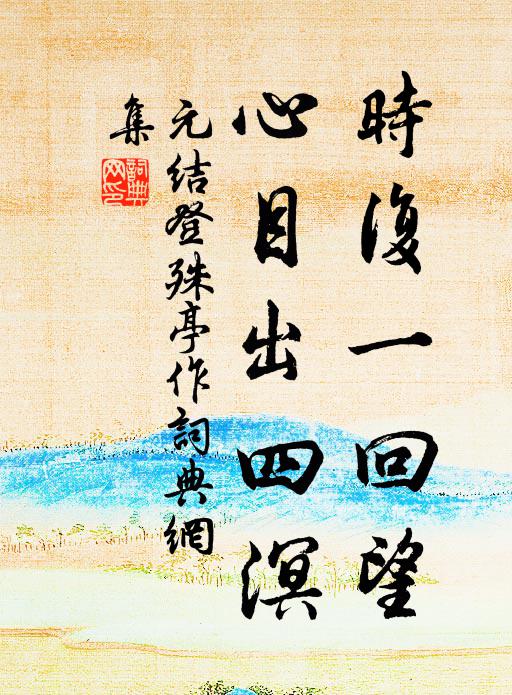 時復一回望
心目出四溟
元結登殊亭作詞典網
集
詞典網印